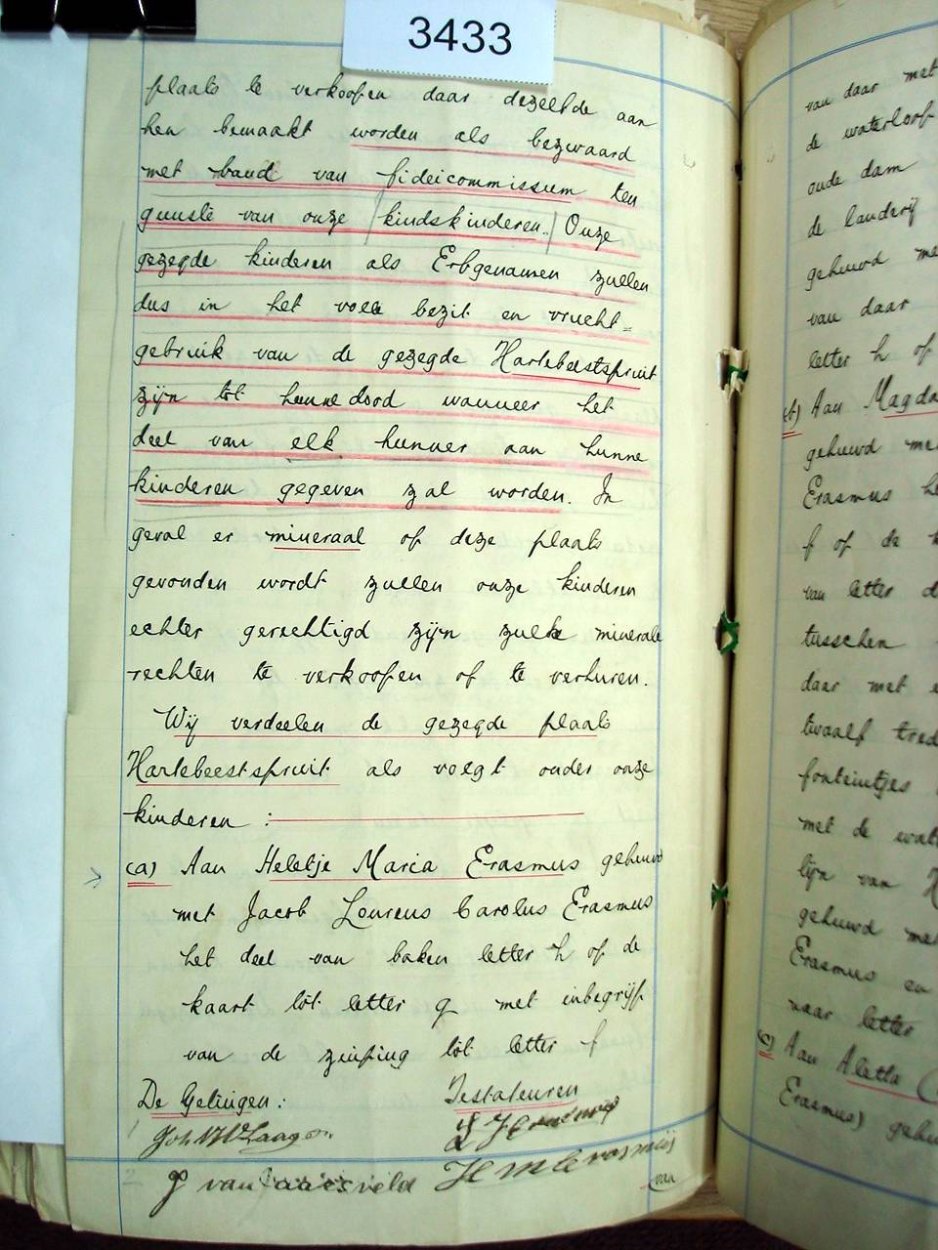 3433
plaats te verkoopen daar dezelfde aan
hen bemaakt worden als bezwaard
met band van fideicommissum ten
gunste van onze kindskinderen. Onze
gezegde kinderen als Erfgenamen zullen
dus in het volle bezit en vrucht=
gebruik van de gezegde Hartebeestspruit
zijn tot hunne dood wanneer het
deel van elk hunner aan hunne
kinderen gegeven zal worden. In
geval er mineraal op deze plaats
gevonden wordt zullen onze kinderen
echter gerechtigd zijn zulke minerale
rechten te verkoopen of te verhuren.
Wij verdeelen de gezegde plaats
Hartebeestspruit als volgt onder onze
kinderen :
(a) Aan Heletje Maria Erasmus gehuwd
met Jacob Lourens Carolus Erasmus
het deel van baken letter h op de
kaart tot letter g met inbegrip
van de zuiping tot letter f
De Getuigen: Testateuren
J van
H M Erasmus
van
van daar met
de waterloop
oude dam
de landerij
gehuwd me
van daar
letter h op
(b) Aan Magda
gehuwd me
Erasmus he
f op de
van letter d
tusschen
daar met e
twaalf tred
fonteintjes
met de wat
lijn van H
gehuwd met
Erasmus en
naar letter
(c) Aan Aletta
Erasmus) gehu